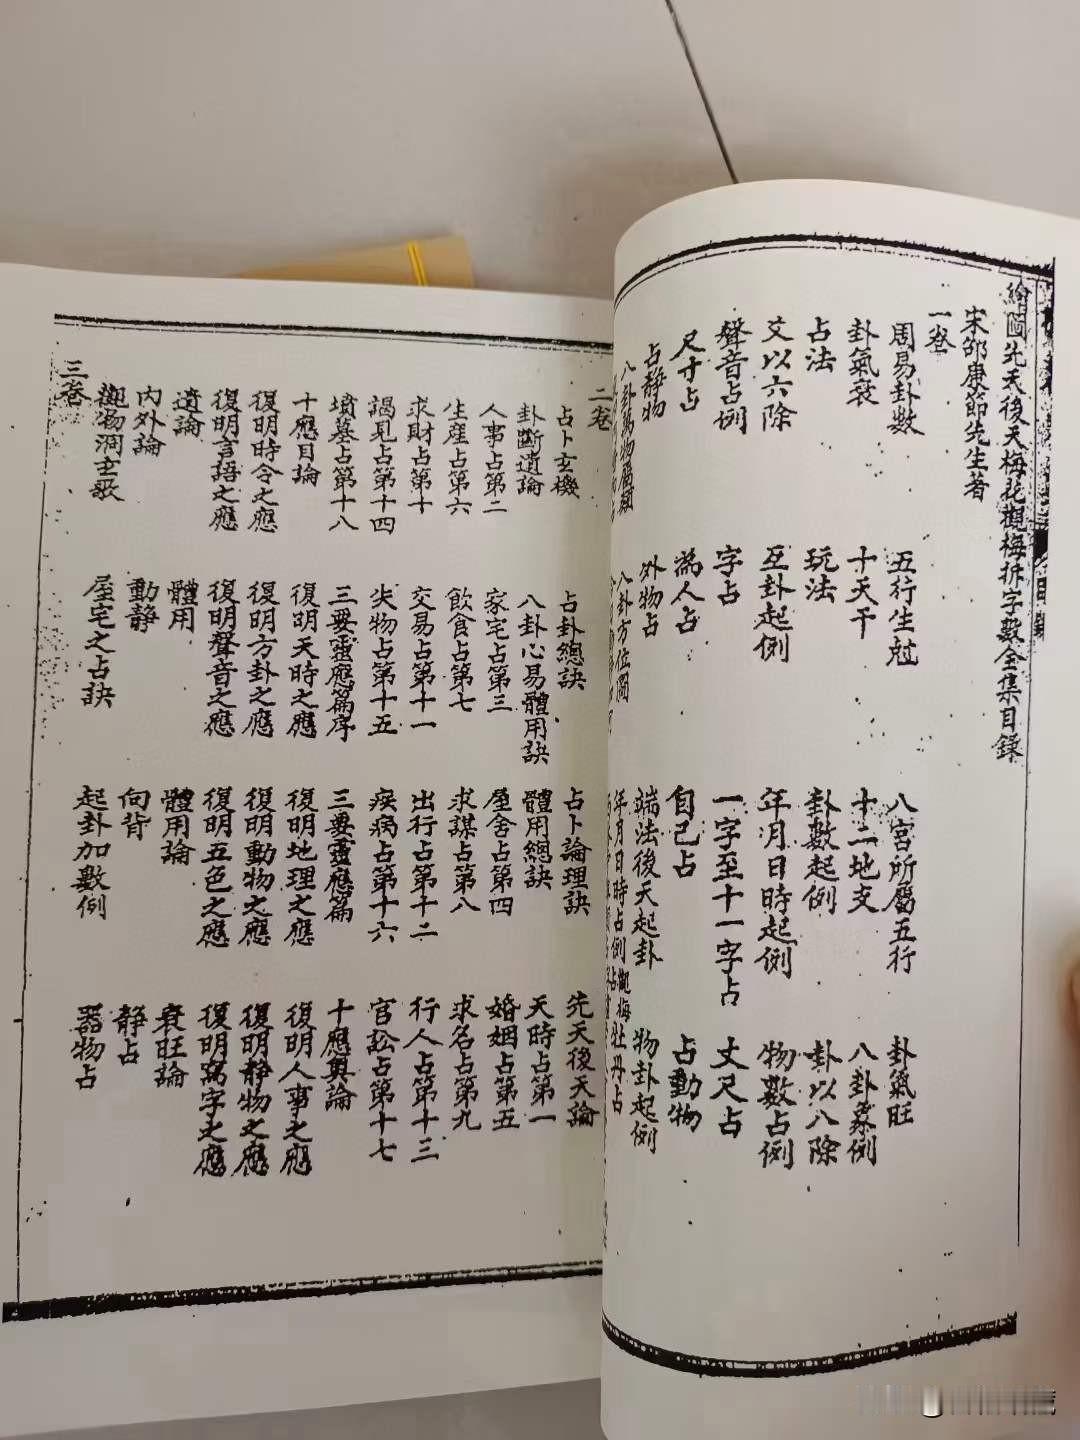 繪圖先天後天梅花觀梅拆字數全集目錄
宋邵康節先生著
一卷
周易卦數 五行生尅 八宮所屬五行 卦氣旺
卦氣衰 十天干 十二地支 八卦象例
占法 玩法 卦數起例 卦以八除
爻以六除 互卦起例 年月日時起例 物數占例
聲音占例 字占 一字至十一字占 丈尺占
尺寸占 為人占 自己占 占動物
占静物 外物占 端法後天起卦 物卦起例
八卦萬物屬類 八卦方位圖 年月日時占例 觀梅 牡丹占
二卷
占卜玄機 占卦總訣 占卜論理訣 先天後天論
卦斷遺論 八卦心易體用訣 體用總訣 天時占第一
人事占第二 家宅占第三 屋舍占第四 婚姻占第五
生産占第六 飲食占第七 求謀占第八 求名占第九
求財占第十 交易占第十一 出行占第十二 行人占第十三
謁見占第十四 失物占第十五 疾病占第十六 官訟占第十七
墳墓占第十八 三要靈應篇序 三要靈應篇 十應奧論
十應目論 復明天時之應 復明地理之應 復明人事之應
復明時令之應 復明方卦之應 復明動物之應 復明静物之應
復明言語之應 復明聲音之應 復明五色之應 復明寫字之應
遺論 體用 體用論 衰旺論
內外論 動静 向背 静占
三卷
觀物洞玄歌 屋宅之占訣 起卦加數例 器物占